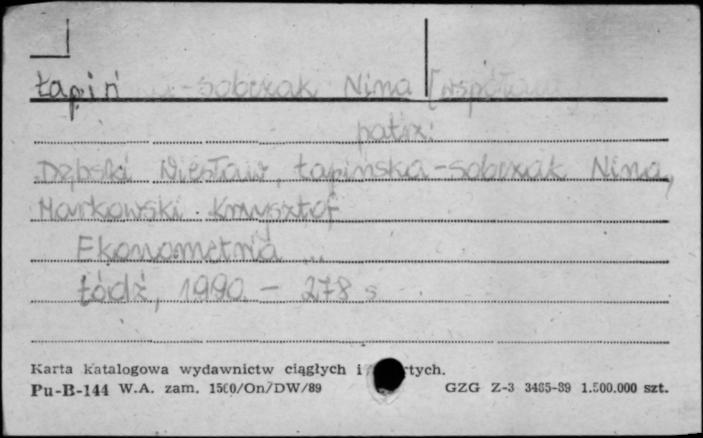 Łapińska-Sobczak Nina [współaut.
patrz:
Dębski Wiesław, Łapińska-Sobczak Nina,
Markowski Krzysztof
Ekonometria ...
Łódź, 1990. - 278 s
Karta katalogowa wydawnictw ciągłych i
Pu-B-144 W.A. zam. 1500/On/DW/89 GZG Z-3 3485-89 1.500.000 szt.